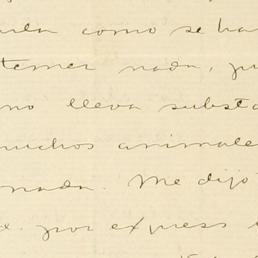 como se ha
temer nada,
no lleva substa
muchos animale
nada. Me dijo
x. por express